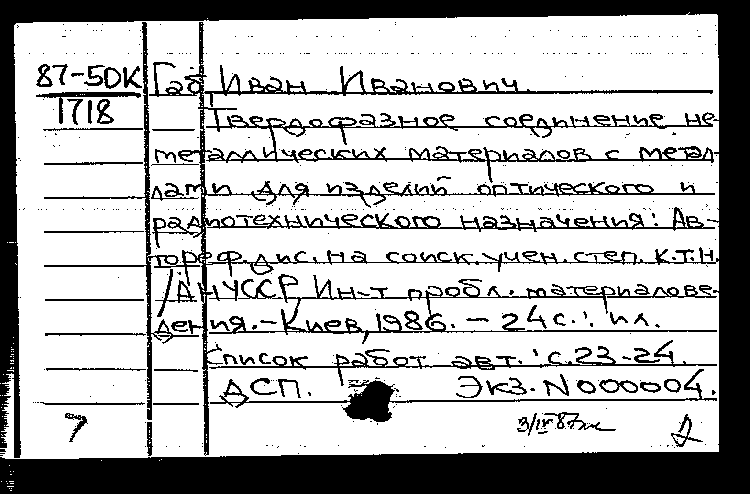 87-5DK Габ Иван Иванович.
1718 Твердофазное соединение не-
металлических материалов с метал-
лами для изделий оптического и
радиотехнического назначения: Ав-
тореф. дис. на соиск. учен. степ. к.т.н.
/АН УССР, Ин-т пробл. материалове-
дения. - Киев, 1986. - 24 с.: ил.
Список работ авт.: с. 23-24.
ДСП. Экз. N000004.
3/IV 87
2